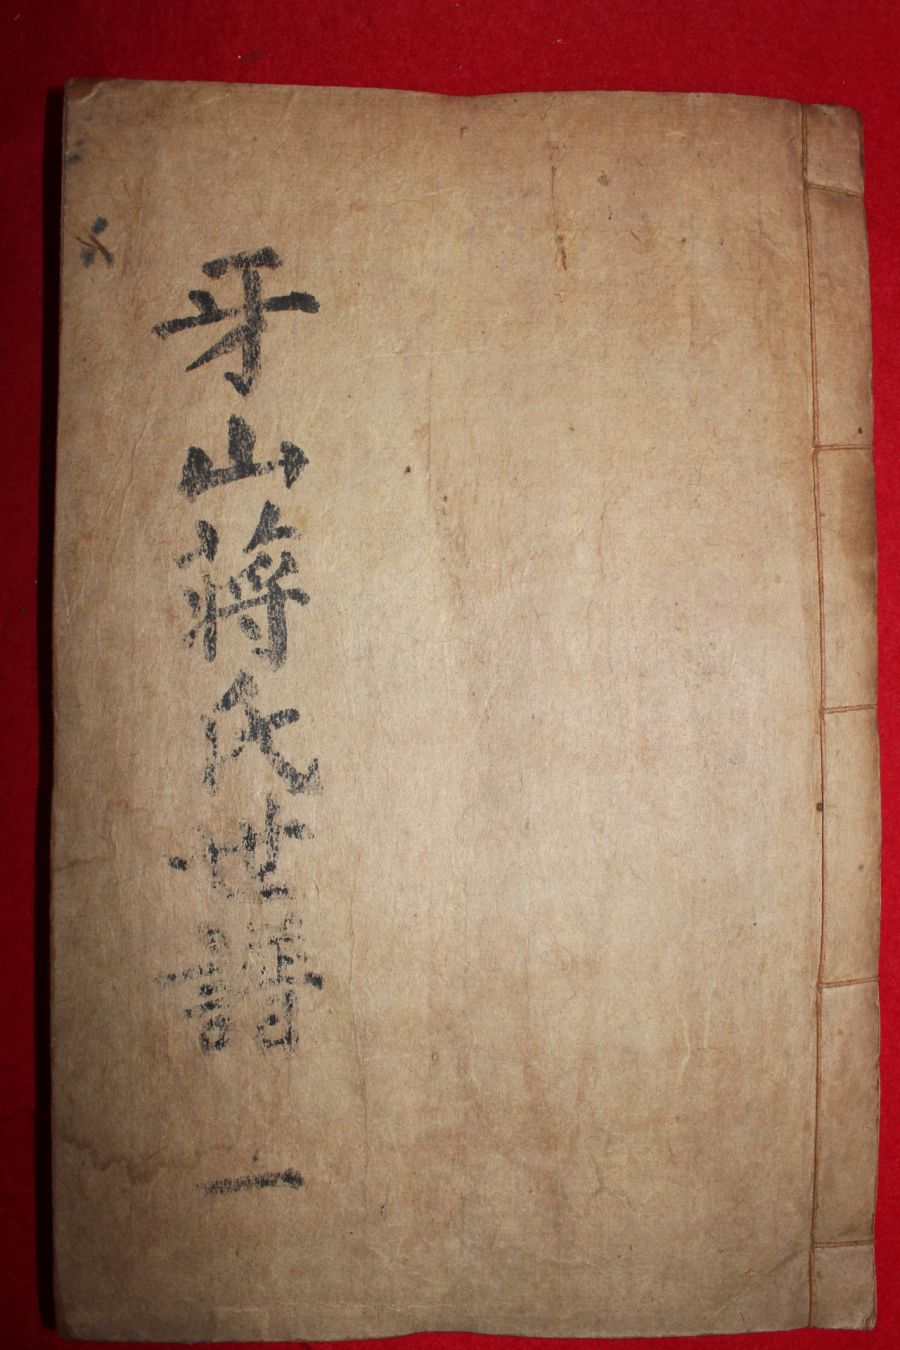 牙山蔣氏世譜 一